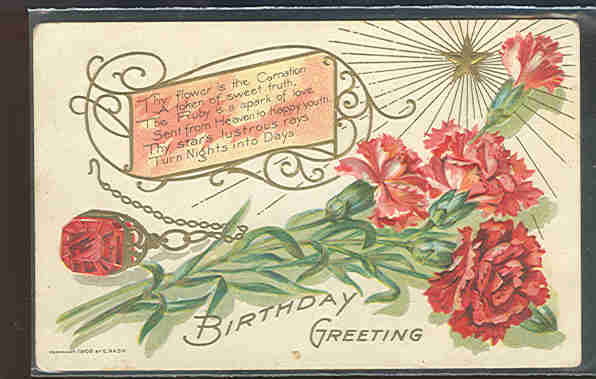 Thy flower is the Carnation
A token of sweet truth.
The Ruby is a spark of love
Sent from Heaven to happy youth.
Thy star's lustrous rays
Turn Nights into Days
BIRTHDAY
GREETING
COPYRIGHT 1908 BY E. NASH